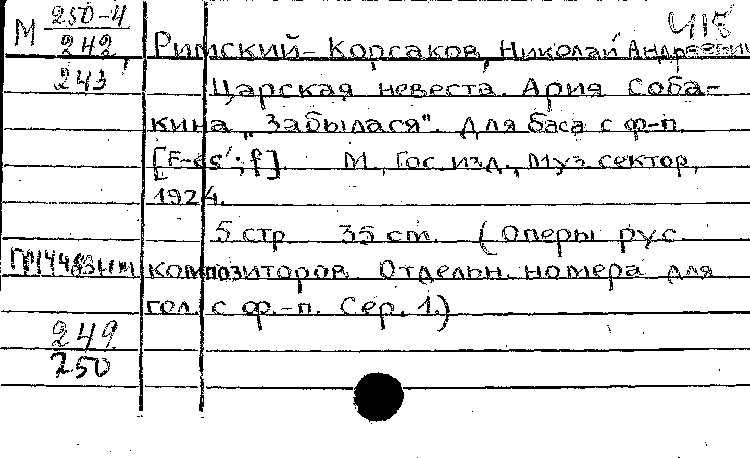 415
М 250-4
242,
243
Римский-Корсаков, Николай Андреевич
Царская невеста. Ария Соба-
кина "Забылася". Для баса с ф-п.
[F-es'; f]. М., Гос. изд., Муз. сектор,
1924.
5 стр. 35 cm. (Оперы рус.
композиторов. Отдельн. номера для
гол. с ф.-п. Сер. 1.)
249
250